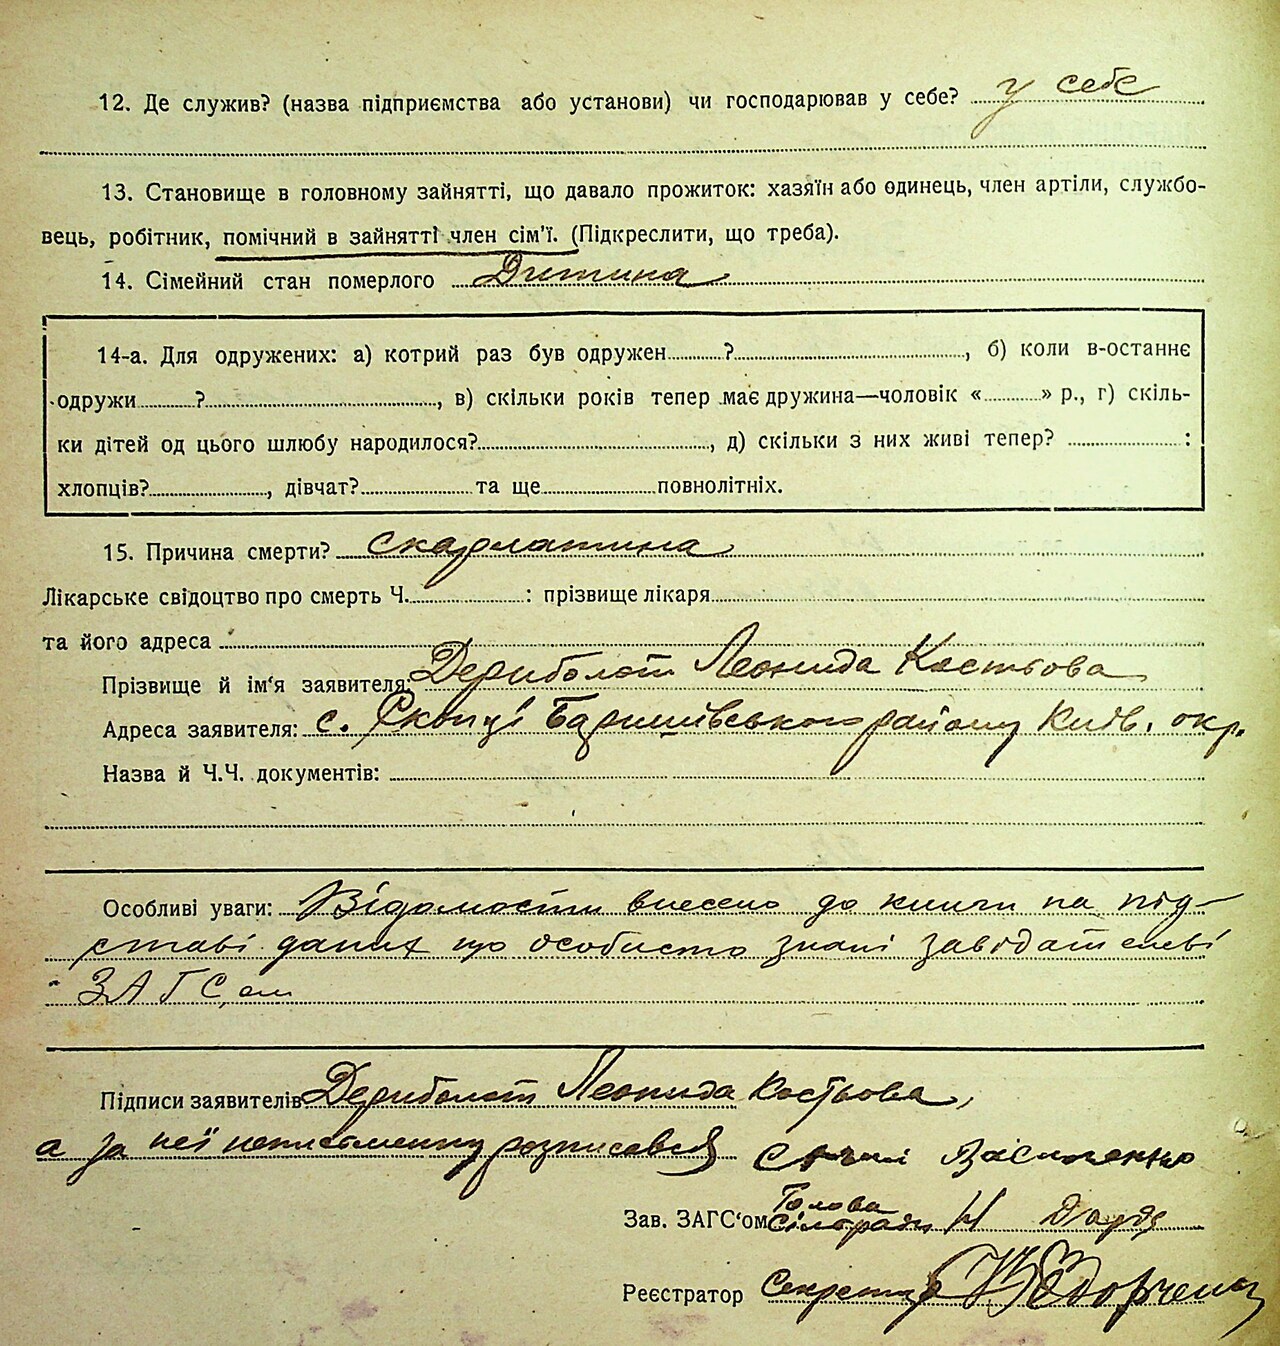 12. Де служив? (назва підприємства або установи) чи господарював у себе? у себе
13. Становище в головному зайнятті, що давало прожиток: хазяїн або одинець, член артіли, службо-
вець, робітник, помічний в зайнятті член сім'ї. (Підкреслити, що треба).
14. Сімейний стан померлого Дитина
14-а. Для одружених: а) котрий раз був одружен ?, б) коли в-останнє
одружи ?, в) скільки років тепер має дружина—чоловік « » р., г) скіль-
ки дітей од цього шлюбу народилося?, д) скільки з них живі тепер? :
хлопців?, дівчат? та ще повнолітніх.
15. Причина смерти? скарлатина
Лікарське свідоцтво про смерть Ч. : прізвище лікаря
та його адреса
Прізвище й ім'я заявителя: Дериболот Леонида Костьова
Адреса заявителя: с. Скопці Баришівського району Київ. окр.
Назва й Ч.Ч. документів:
Особливі уваги: Відомости внесено до книги на під-
ставі даних що особисто знані завідателеві
ЗАГС,ом
Підписи заявителів Дериболот Леонида Костьова,
а за неї неписьменну розписався
Зав. ЗАГС'ом Голова Сільради
Реєстратор Секретар